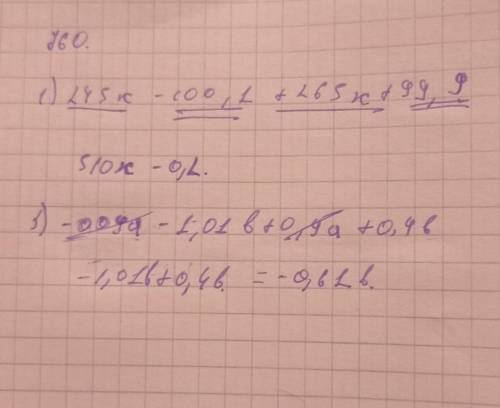 760.
1) 245x - 100,1 + 265x + 99,9
510x - 0,2.
3) -009a - 1,01b + 0,9a + 0,4b
-1,01b + 0,4b. = -0,61b.